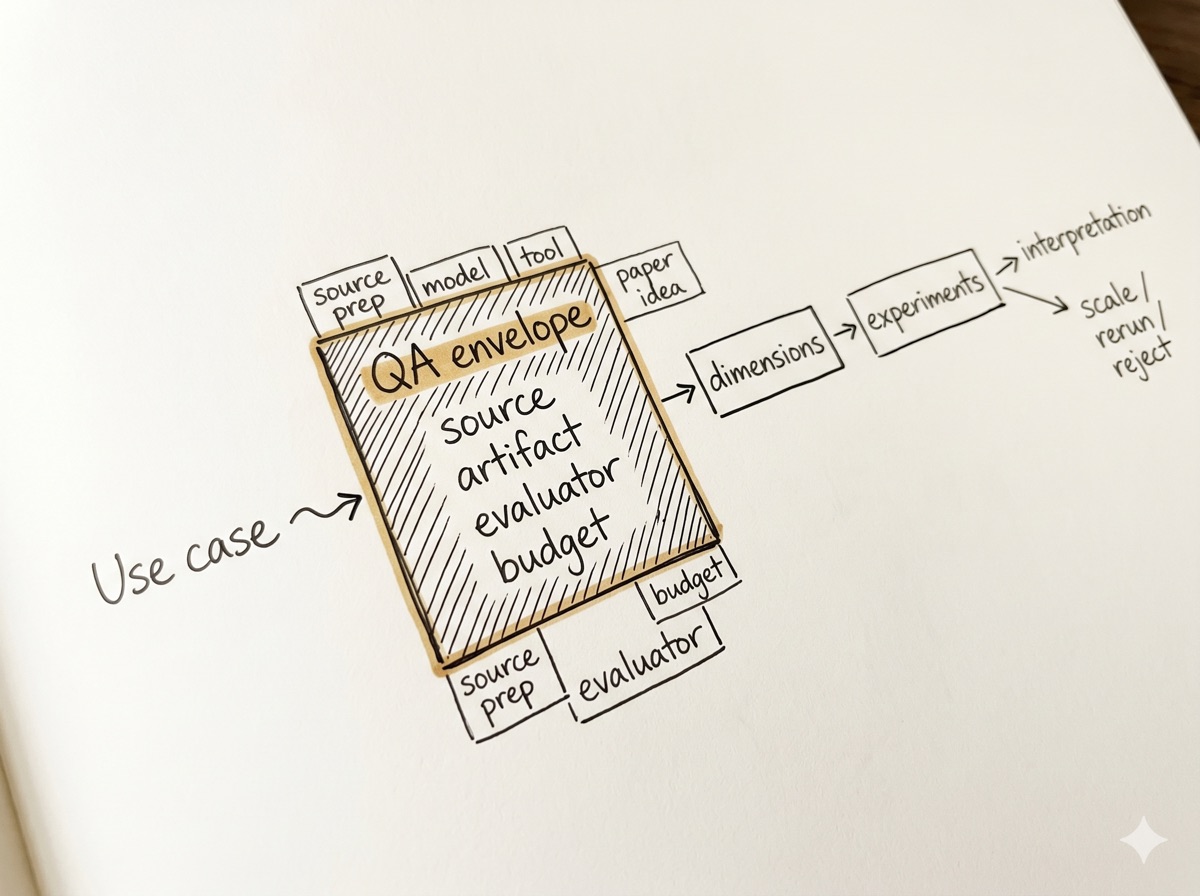 source
prep
model
tool
paper
idea
QA envelope
source
artifact
evaluator
budget
Use case
dimensions
experiments
interpretation
scale/
rerun/
reject
budget
source
prep
evaluator